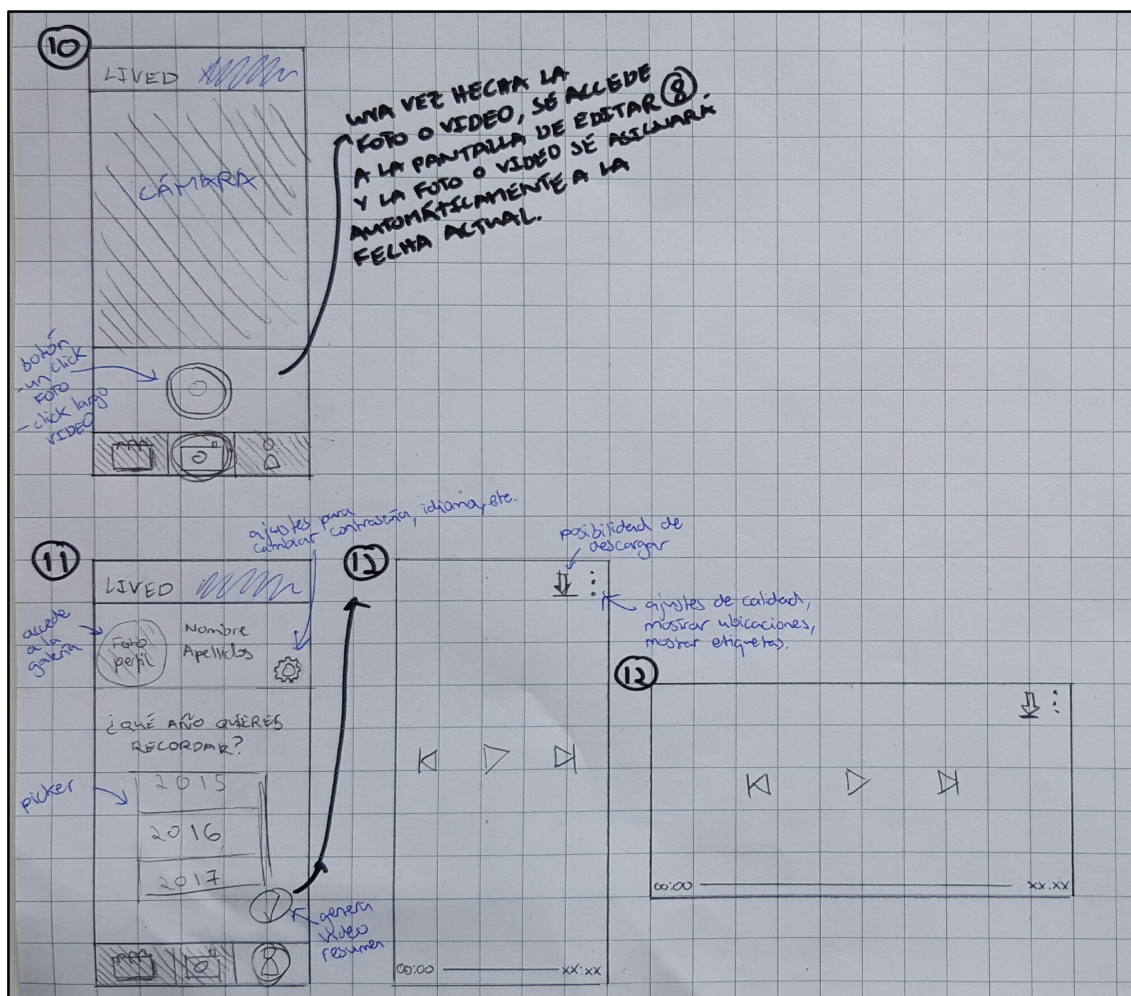 10
LIVED
CÁMARA
UNA VEZ HECHA LA
FOTO O VIDEO, SE ACCEDE
A LA PANTALLA DE EDITAR 8.
Y LA FOTO O VIDEO SE ASIGNARA
AUTOMÁTICAMENTE A LA
FECHA ACTUAL.
botón
-un click
FOTO
-click largo
VIDEO
11
LIVED
accede
a la
galería
FOTO
perfil
Nombre
Apellidos
ajustes para
cambiar contraseña, idioma, etc.
¿QUÉ AÑO QUIERES
RECORDAR?
picker
2015
2016
2017
genera
video
resumen
12
posibilidad de
descargar
ajustes de calidad,
mostrar ubicaciones,
mostrar etiquetas.
00:00
xx:xx
12
00:00
xx:xx